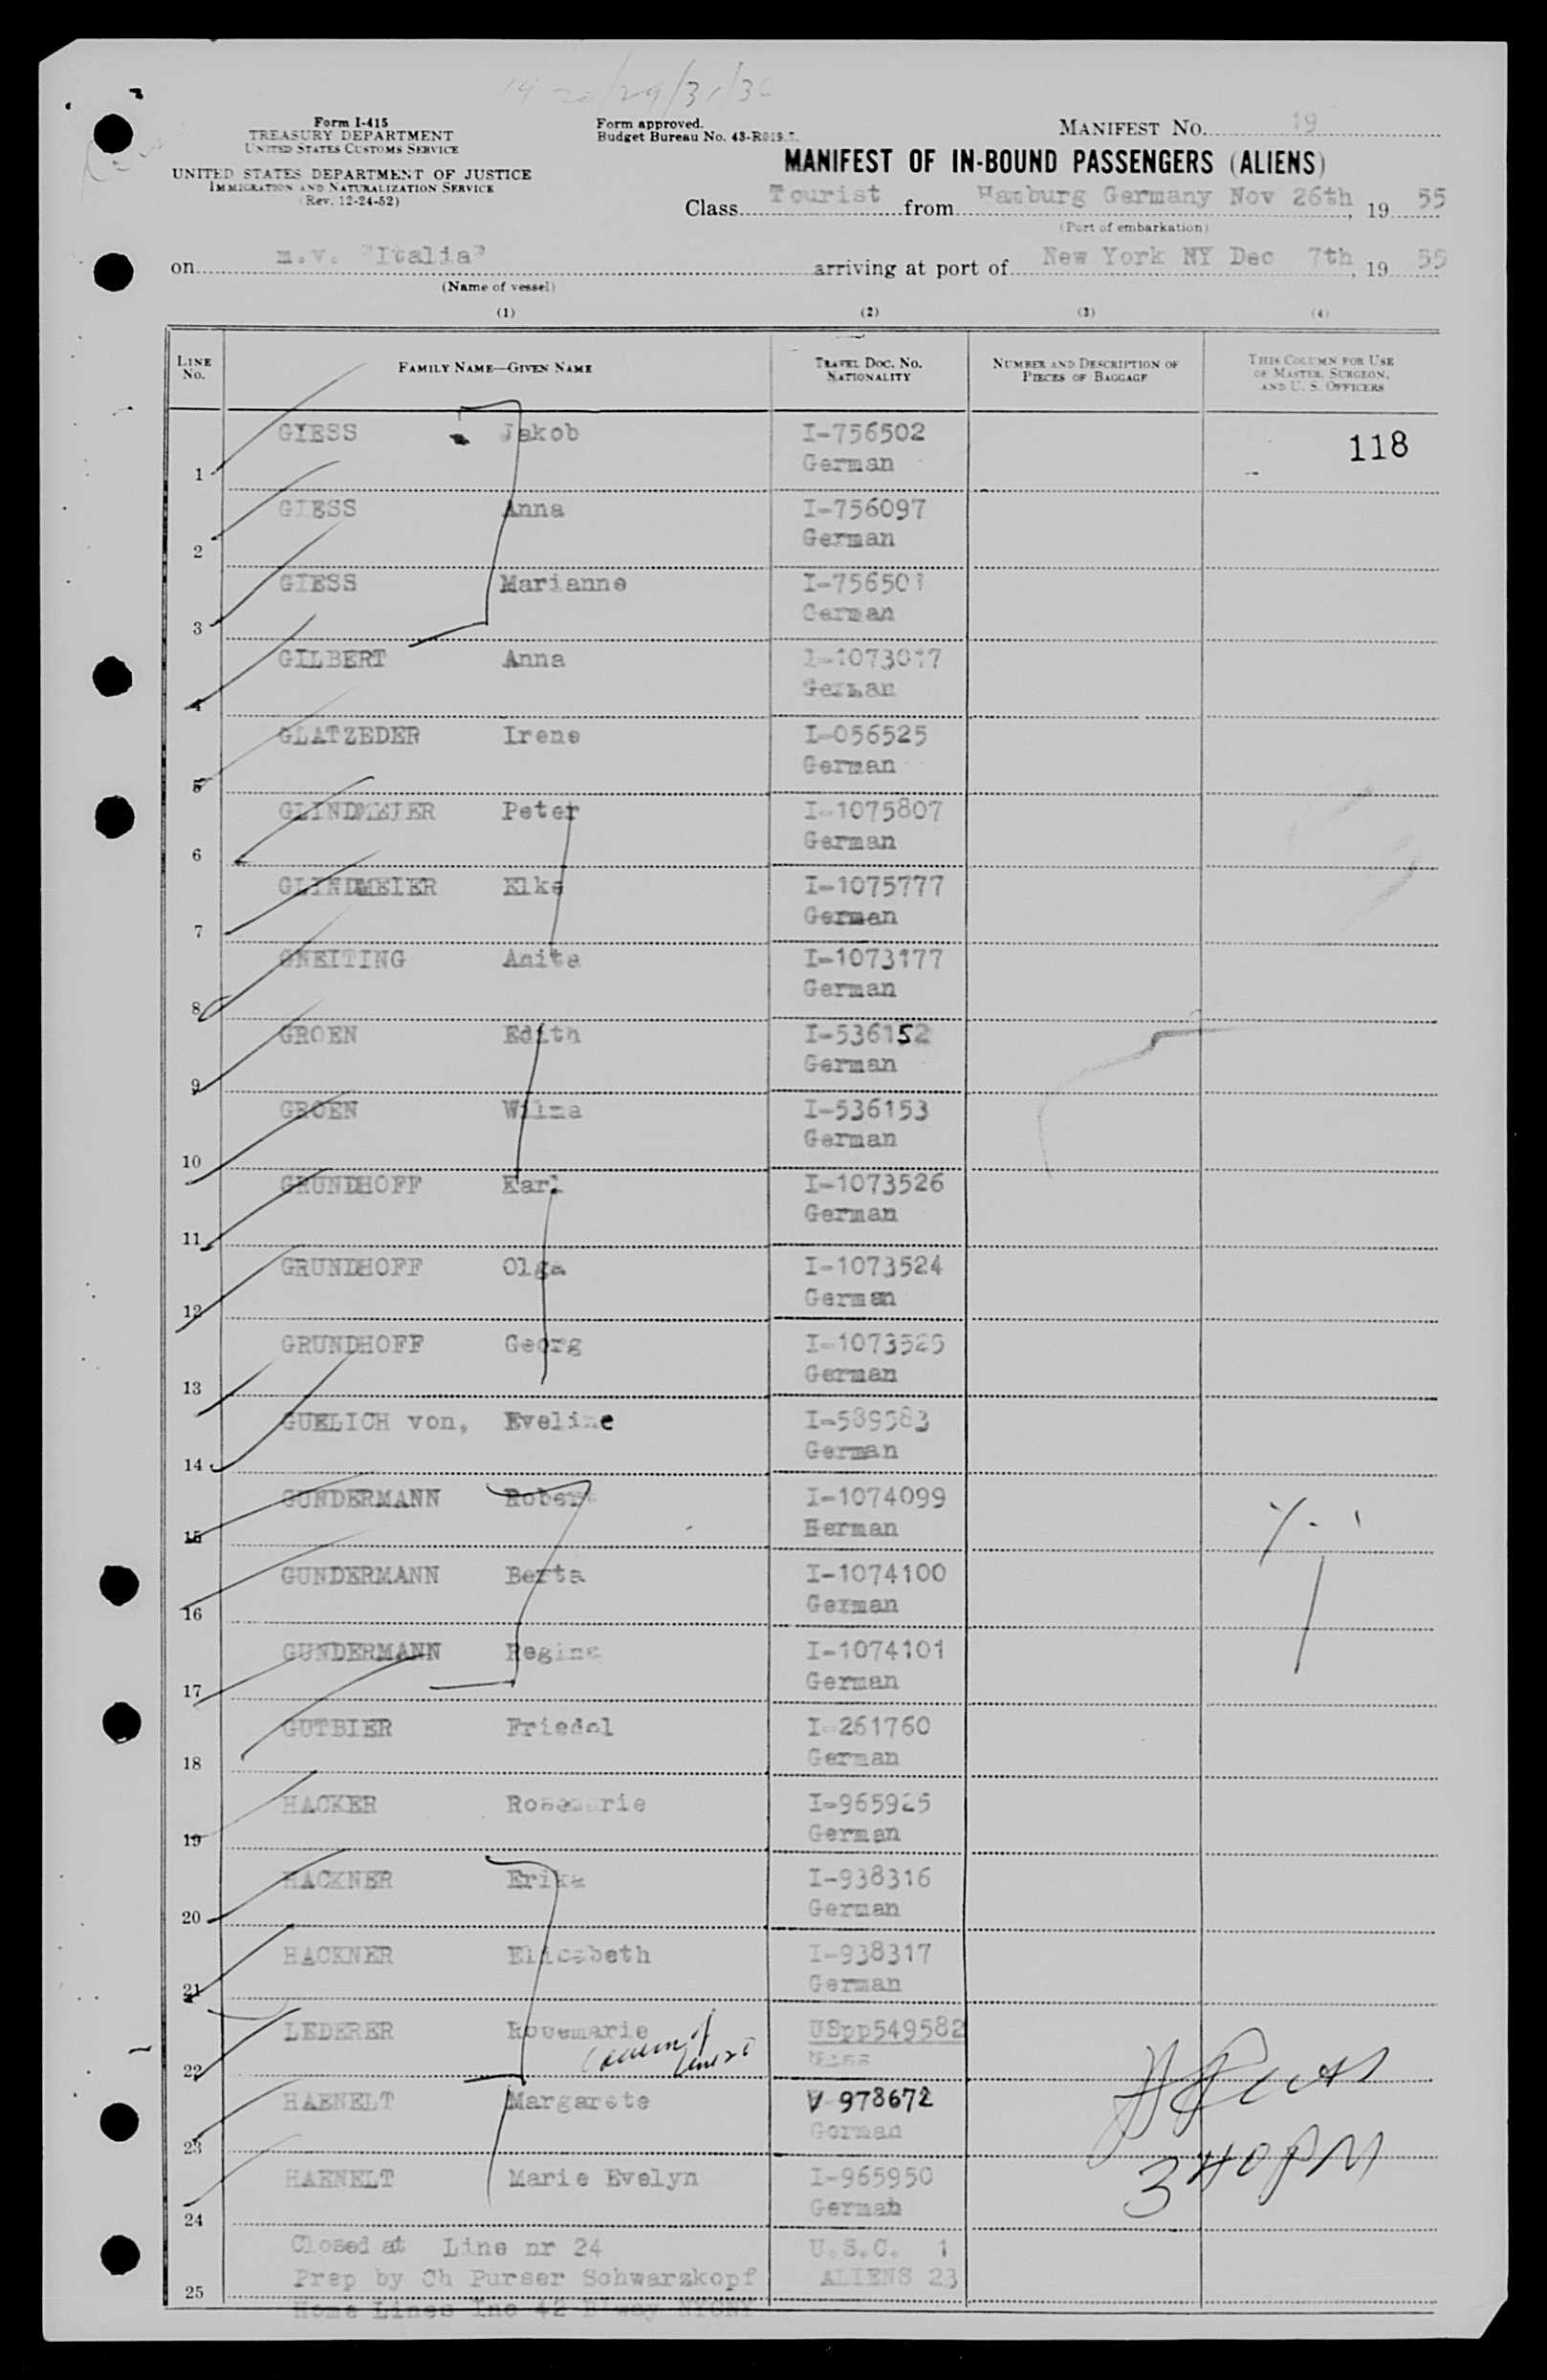 Form I-415
TREASURY DEPARTMENT
UNITED STATES CUSTOMS SERVICE
UNITED STATES DEPARTMENT OF JUSTICE
IMMIGRATION AND NATURALIZATION SERVICE
(Rev. 12-24-52)
Form approved.
Budget Bureau No. 43-R019.
MANIFEST NO. 19
MANIFEST OF IN-BOUND PASSENGERS (ALIENS)
Class Tourist from Hamburg Germany Nov 26th, 19 55
(Port of embarkation)
on m.v. "Italia" arriving at port of New York NY Dec 7th, 19 55
(Name of vessel)
(1) (2) (3) (4)
LINE NO. FAMILY NAME—GIVEN NAME TRAVEL DOC. NO. NATIONALITY NUMBER AND DESCRIPTION OF PIECES OF BAGGAGE THIS COLUMN FOR USE OF MASTER, SURGEON, AND U. S. OFFICERS
GIESS Jakob I-756502 118
1 German
GIESS Anna I-756097
2 German
GIESS Marianne I-756501
3 German
GILBERT Anna I-1073017
4 German
GLATZEDER Irene I-056525
5 German
GLINDMEIER Peter I-1075807
6 German
GLINDMEIER Elke I-1075777
7 German
GNEITING Anita I-1073177
8 German
GROEN Edith I-536152
9 German
GROEN Wilma I-536153
10 German
GRUNDHOFF Karl I-1073526
11 German
GRUNDHOFF Olga I-1073524
12 German
GRUNDHOFF Georg I-1073525
13 German
GUELICH von, Eveline I-589583
14 German
GUNDERMANN Robert I-1074099
15 German
GUNDERMANN Berta I-1074100
16 German
GUNDERMANN Regina I-1074101
17 German
GUTBIER Friedel I-261760
18 German
HACKER Rosemarie I-965925
19 German
HACKNER Erika I-938316
20 German
HACKNER Elisabeth I-938317
21 German
LEDERER Rosemarie USpp549582
22
HAENELT Margarete V-978672
23 German
HAENELT Marie Evelyn I-965950
24 German
Closed at Line nr 24 U.S.C. 1
Prep by Ch Purser Schwarzkopf ALIENS 23
25
Home Lines Inc 42 B'way NYCNY
3 40 PM